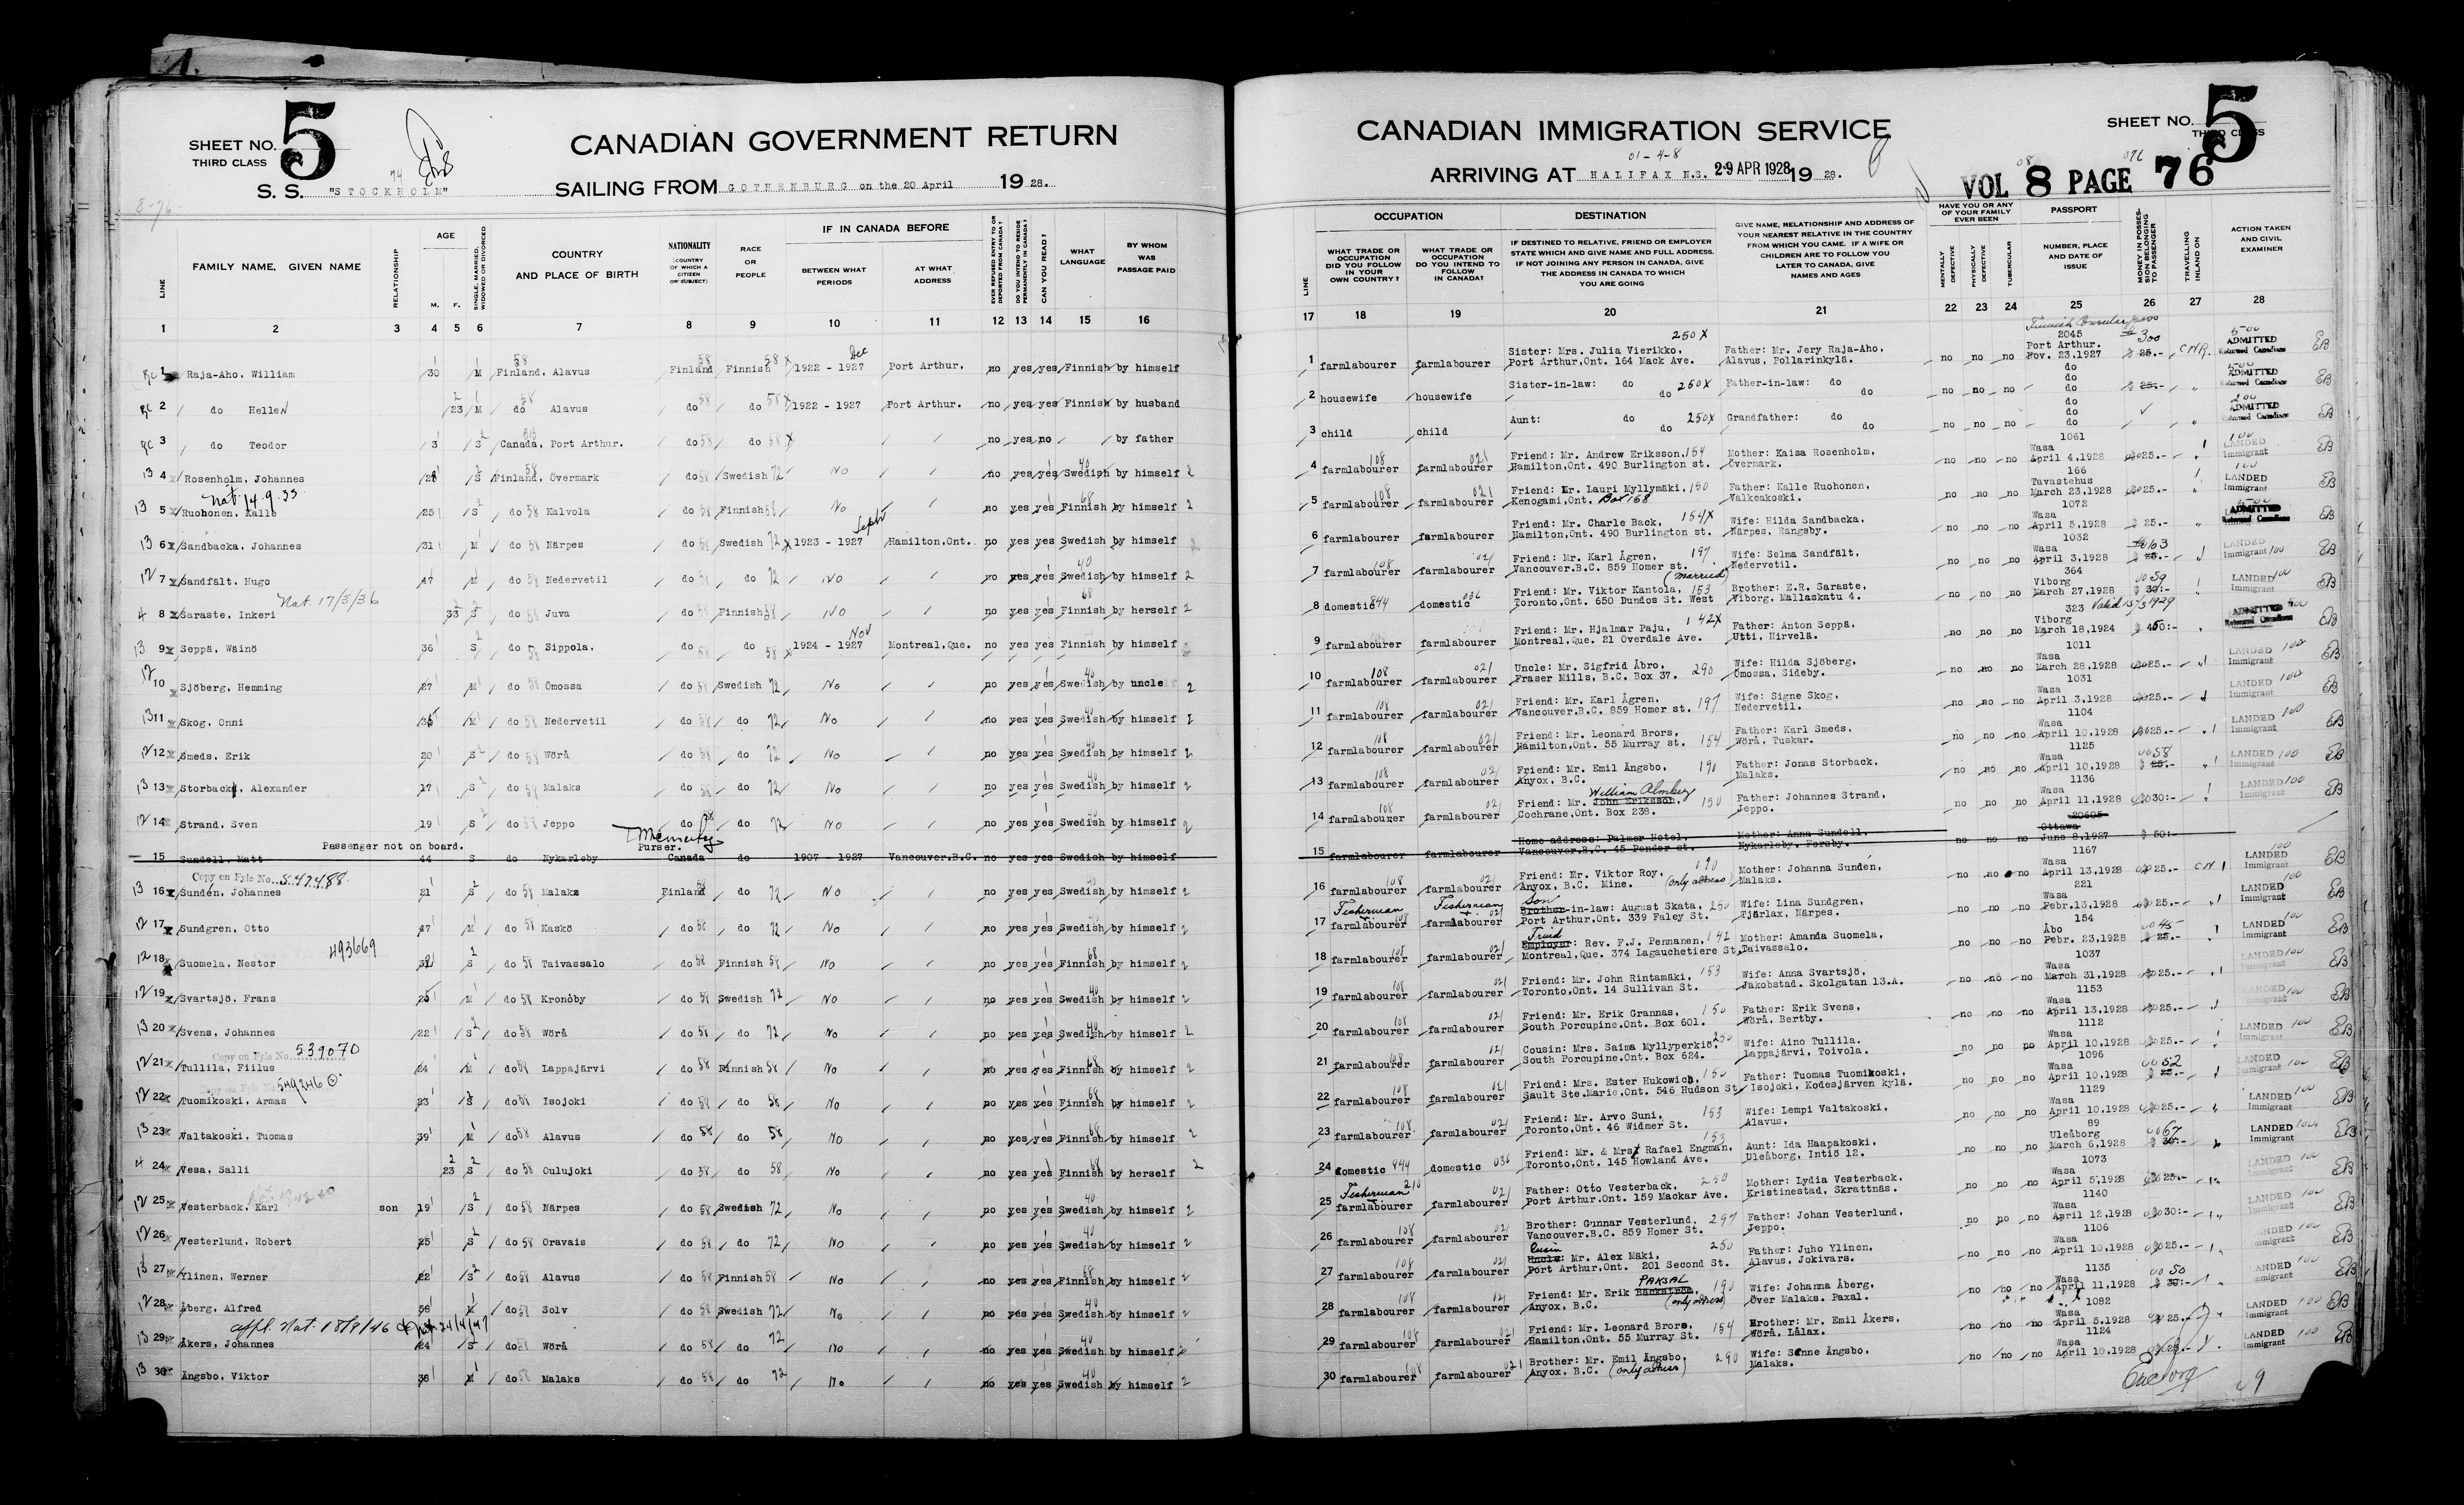 SHEET NO. 5
THIRD CLASS
CANADIAN GOVERNMENT RETURN
S. S. "STOCKHOLM" SAILING FROM GOTHENBURG on the 20 April 1928.
LINE FAMILY NAME, GIVEN NAME RELATIONSHIP AGE M. F. SINGLE, MARRIED, WIDOWED OR DIVORCED COUNTRY AND PLACE OF BIRTH NATIONALITY (COUNTRY OF WHICH A CITIZEN OR SUBJECT) RACE OR PEOPLE IF IN CANADA BEFORE BETWEEN WHAT PERIODS AT WHAT ADDRESS EVER REFUSED ENTRY TO OR DEPORTED FROM CANADA? DO YOU INTEND TO RESIDE PERMANENTLY IN CANADA? CAN YOU READ? WHAT LANGUAGE BY WHOM WAS PASSAGE PAID
1 2 3 4 5 6 7 8 9 10 11 12 13 14 15 16
1 Raja-Aho, William 30 M Finland, Alavus Finland Finnish 1922 - 1927 Dec Port Arthur. no yes yes Finnish by himself
2 do Hellen 23 M do Alavus do do 1922 - 1927 Port Arthur. no yes yes Finnish by husband
3 do Teodor 3 S Canada, Port Arthur. do do no yes no by father
4 Rosenholm, Johannes 28 S Finland, Övermark do Swedish No no yes yes Swedish by himself
Nat. 14.9.33
5 Ruohonen, Kalle 25 S do Kalvola do Finnish No no yes yes Finnish by himself
6 Sandbacka, Johannes 31 M do Närpes do Swedish 1923 - 1927 Sept Hamilton, Ont. no yes yes Swedish by himself
7 Sandfält, Hugo 47 M do Nedervetil do do No no yes yes Swedish by himself
Nat 17/3/36
8 Saraste, Inkeri 33 S do Juva do Finnish No no yes yes Finnish by herself
9 Seppä, Wäinö 36 S do Sippola. do do 1924 - 1927 Nov Montreal, Que. no yes yes Finnish by himself
10 Sjöberg, Hemming 27 M do Ömossa do Swedish No no yes yes Swedish by uncle
11 Skog, Onni M do Nedervetil do do No no yes yes Swedish by himself
12 Smeds, Erik 20 S do Wörå do do No no yes yes Swedish by himself
13 Storback, Alexander 17 S do Malaks do do No no yes yes Swedish by himself
14 Strand, Sven 19 S do Jeppo do do No no yes yes Swedish by himself
Passenger not on board. Purser.
15 Sundell, Matt 44 S do Nykarleby Canada do 1907 - 1927 Vancouver.B.C. no yes yes Swedish by himself
Copy on Fyle No. 547488
16 Sundén, Johannes 21 S do Malaks Finland do No no yes yes Swedish by himself
17 Sundgren, Otto 47 M do Kaskö do do No no yes yes Swedish by himself
493669
18 Suomela, Nestor S do Taivassalo do Finnish No no yes yes Finnish by himself
19 Svartsjö, Frans 25 M do Kronöby do Swedish No no yes yes Swedish by himself
20 Svens, Johannes 22 S do Wörå do do No no yes yes Swedish by himself
Copy on Fyle No. 539070
21 Tullila, Fiilus 24 M do Lappajärvi do Finnish No no yes yes Finnish by himself
Copy on Fyle No. 549246
22 Tuomikoski, Armas 23 S do Isojoki do do No no yes yes Finnish by himself
23 Valtakoski, Tuomas 39 M do Alavus do do No no yes yes Finnish by himself
24 Vesa, Salli 23 S do Oulujoki do do No no yes yes Finnish by herself
25 Vesterback, Karl son 19 S do Närpes do Swedish No no yes yes Swedish by himself
26 Vesterlund, Robert 25 S do Oravais do do No no yes yes Swedish by himself
27 Ylinen, Werner 22 S do Alavus do Finnish No no yes yes Finnish by himself
28 Åberg, Alfred M do Solv do Swedish No no yes yes Swedish by himself
appl. Nat. 18/8/46
29 Åkers, Johannes 24 S do Wörå do do No no yes yes Swedish by himself
30 Ängsbo, Viktor 38 M do Malaks do do No no yes yes Swedish by himself
CANADIAN IMMIGRATION SERVICE
SHEET NO. 5
THIRD CLASS
01-4-8
ARRIVING AT HALIFAX N.S. 29 APR 1928 1928.
VOL 8 PAGE 76
LINE OCCUPATION WHAT TRADE OR OCCUPATION DID YOU FOLLOW IN YOUR OWN COUNTRY? WHAT TRADE OR OCCUPATION DO YOU INTEND TO FOLLOW IN CANADA? DESTINATION IF DESTINED TO RELATIVE, FRIEND OR EMPLOYER STATE WHICH AND GIVE NAME AND FULL ADDRESS. IF NOT JOINING ANY PERSON IN CANADA, GIVE THE ADDRESS IN CANADA TO WHICH YOU ARE GOING GIVE NAME, RELATIONSHIP AND ADDRESS OF YOUR NEAREST RELATIVE IN THE COUNTRY FROM WHICH YOU CAME. IF A WIFE OR CHILDREN ARE TO FOLLOW YOU LATER TO CANADA, GIVE NAMES AND AGES HAVE YOU OR ANY OF YOUR FAMILY EVER BEEN MENTALLY DEFECTIVE PHYSICALLY DEFECTIVE TUBERCULAR PASSPORT NUMBER, PLACE AND DATE OF ISSUE MONEY IN POSSESSION BELONGING TO PASSENGER TRAVELLING INLAND ON ACTION TAKEN AND CIVIL EXAMINER
17 18 19 20 21 22 23 24 25 26 27 28
1 farmlabourer farmlabourer Sister: Mrs. Julia Vierikko, Port Arthur, Ont. 164 Mack Ave. 250 X Father: Mr. Jery Raja-Aho, Alavus, Pollarinkylä. no no no 2045 Port Arthur. Nov. 23,1927 $ 25.- 300 CNR. ADMITTED Returned Canadians EB
2 housewife housewife Sister-in-law: do do 250X Father-in-law: do do no no no do do $ 25.- ADMITTED Returned Canadians EB
3 child child Aunt: do do 250X Grandfather: do do no no no do do do ADMITTED Returned Canadians EB
4 farmlabourer farmlabourer Friend: Mr. Andrew Eriksson, Hamilton, Ont. 490 Burlington st. 154 Mother: Kaisa Rosenholm, Övermark. no no no 1061 Wasa April 4,1928 25.- LANDED Immigrant EB
5 farmlabourer farmlabourer Friend: Mr. Lauri Myllymäki, Kenogami, Ont. Box 168 150 Father: Kalle Ruohonen, Valkeakoski. no no no 166 Tavastehus March 23,1928 25.- LANDED Immigrant EB
6 farmlabourer farmlabourer Friend: Mr. Charle Back, Hamilton, Ont. 490 Burlington st. 154X Wife: Hilda Sandbacka, Närpes, Rangsby. no no no 1072 Wasa April 5,1928 $ 25.- ADMITTED Returned Canadians EB
7 farmlabourer farmlabourer Friend: Mr. Karl Ågren, Vancouver.B.C. 859 Homer st. 197 Wife: Selma Sandfält, Nedervetil. no no no 1032 Wasa April 3,1928 $ 25.- LANDED Immigrant 100 EB
8 domestic 844 domestic 036 Friend: Mr. Viktor Kantola, (married) Toronto, Ont. 650 Dundos St. West 153 Brother: E.R. Saraste, Viborg, Mallaskatu 4. no no no 364 Viborg March 27,1928 $ 30:- 59 LANDED Immigrant 100 EB
9 farmlabourer farmlabourer Friend: Mr. Hjalmar Paju, Montreal, Que. 21 Overdale Ave. 142X Father: Anton Seppä, Utti, Hirvelä. no no no 323 Viborg March 18,1924 ADMITTED Returned Canadians EB
10 farmlabourer farmlabourer Uncle: Mr. Sigfrid Åbro, Fraser Mills, B.C. Box 37. 290 Wife: Hilda Sjöberg, Ömossa, Sideby. no no no 1011 Wasa March 28,1928 25.- LANDED Immigrant 100 EB
11 farmlabourer farmlabourer Friend: Mr. Karl Ågren, Vancouver.B.C. 859 Homer st. 197 Wife: Signe Skog, Nedervetil. no no no 1031 Wasa April 3,1928 25.- LANDED Immigrant 100 EB
12 farmlabourer farmlabourer Friend: Mr. Leonard Brors, Hamilton, Ont. 55 Murray st. 154 Father: Karl Smeds, Wörå, Tuskar. no no no 1104 Wasa April 10,1928 25.- LANDED Immigrant 100 EB
13 farmlabourer farmlabourer Friend: Mr. Emil Ängsbo, Anyox, B.C. 190 Father: Jonas Storback, Malaks. no no no 1125 Wasa April 10,1928 $ 25.- 58 LANDED Immigrant 100 EB
14 farmlabourer farmlabourer Friend: Mr. John Eriksson, William Almberg Cochrane, Ont. Box 238. 150 Father: Johannes Strand, Jeppo. no no no 1136 Wasa April 11,1928 30:- LANDED Immigrant 100 EB
15 farmlabourer farmlabourer Home address: Palmer Hotel, Vancouver.B.C. 45 Pender st. Mother: Anna Sundell, Nykarleby, Forsby. no no no 20605 Ottawa June 8,1927 $ 50:-
16 farmlabourer farmlabourer Friend: Mr. Viktor Roy, Anyox, B.C. Mine. (only address) 190 Mother: Johanna Sundén, Malaks. no no no 1167 Wasa April 13,1928 25.- CN LANDED Immigrant 100 EB
17 Fisherman farmlabourer Fisherman farmlabourer Brother-in-law: Son August Skata, Port Arthur, Ont. 339 Faley St. 250 Wife: Lina Sundgren, Tjärlax, Närpes. no no no 221 Wasa Febr.13,1928 25.- LANDED Immigrant 100 EB
18 farmlabourer farmlabourer Employer: Friend Rev. F.J. Pennanen, Montreal, Que. 374 Lagauchetiere St. 142 Mother: Amanda Suomela, Taivassalo. no no no 154 Åbo Febr. 23,1928 $ 25.- 45 LANDED Immigrant 100 EB
19 farmlabourer farmlabourer Friend: Mr. John Rintamäki, Toronto, Ont. 14 Sullivan St. 153 Wife: Anna Svartsjö, Jakobstad. Skolgatan 13.A. no no no 1037 Wasa March 31,1928 25.- LANDED Immigrant 100 EB
20 farmlabourer farmlabourer Friend: Mr. Erik Grannas, South Porcupine, Ont. Box 601. 150 Father: Erik Svens, Wörå, Bertby. no no no 1153 Wasa April 13,1928 25.- LANDED Immigrant 100 EB
21 farmlabourer farmlabourer Cousin: Mrs. Saima Myllyperkiö, South Porcupine, Ont. Box 624. Wife: Aino Tullila, Lappajärvi, Toivola. no no no 1112 Wasa April 10,1928 25.- LANDED Immigrant 100 EB
22 farmlabourer farmlabourer Friend: Mrs. Ester Hukowich, Sault Ste.Marie, Ont. 546 Hudson St. 150 Father: Tuomas Tuomikoski, Isojoki, Kodesjärven kylä. no no no 1096 Wasa April 10,1928 $ 25.- 52 LANDED Immigrant 100 EB
23 farmlabourer farmlabourer Friend: Mr. Arvo Suni, Toronto, Ont. 46 Widmer St. 153 Wife: Lempi Valtakoski, Alavus. no no no 1129 Wasa April 10,1928 25.- LANDED Immigrant 100 EB
24 domestic 844 domestic 036 Friend: Mr. & Mrs. Rafael Engman, Toronto, Ont. 145 Howland Ave. 153 Aunt: Ida Haapakoski, Uleåborg, Intiö 12. no no no 89 Uleåborg March 6,1928 67 LANDED Immigrant 100 EB
25 Fisherman farmlabourer farmlabourer Father: Otto Vesterback, Port Arthur, Ont. 159 Mackar Ave. 250 Mother: Lydia Vesterback, Kristinestad, Skrattnäs. no no no 1073 Wasa April 5,1928 25.- LANDED Immigrant 100 EB
26 farmlabourer farmlabourer Brother: Gunnar Vesterlund, Vancouver.B.C. 859 Homer St. 297 Father: Johan Vesterlund, Jeppo. no no no 1140 Wasa April 12,1928 30:- LANDED Immigrant 100 EB
27 farmlabourer farmlabourer Uncle: Cusin Mr. Alex Mäki, Port Arthur, Ont. 201 Second St. 250 Father: Juho Ylinen, Alavus, Jokivars. no no no 1106 Wasa April 10,1928 25.- LANDED Immigrant 100 EB
28 farmlabourer farmlabourer Friend: Mr. Erik Backström, PAKSAL Anyox, B.C. (only address) 190 Wife: Johanna Åberg, Över Malaks. Paxal. no no no 1135 Wasa April 11,1928 $ 30:- 50 LANDED Immigrant 100 EB
29 farmlabourer farmlabourer Friend: Mr. Leonard Brors, Hamilton, Ont. 55 Murray St. 154 Brother: Mr. Emil Åkers, Wörå, Lålax. no no no 1082 Wasa April 5,1928 25.- LANDED Immigrant 100 EB
30 farmlabourer farmlabourer Brother: Mr. Emil Ängsbo, Anyox, B.C. (only address) 290 Wife: Sanne Ängsbo, Malaks. no no no 1124 Wasa April 10,1928 LANDED Immigrant 100 EB